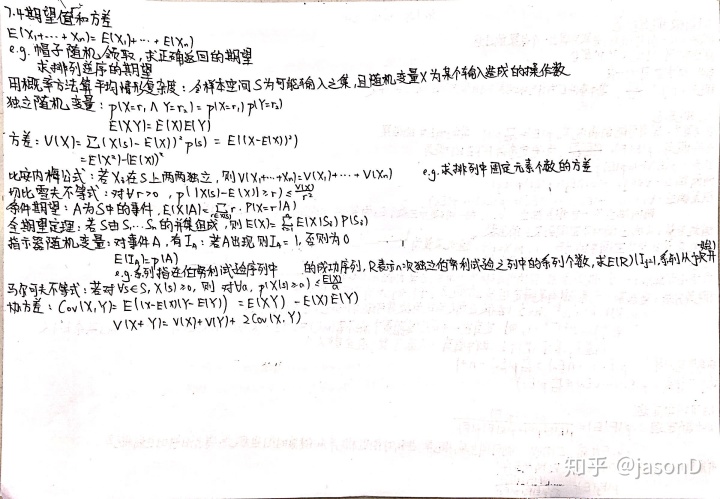 7.4期望值和方差
E(X₁+…+Xn)=E(X₁)+…+E(Xn)
e.g. 帽子随机领取,求正确返回的期望
求排列逆序的期望
用概率方法算平均情形复杂度:令样本空间S为可能输入之集,且随机变量X为某个输入造成的操作数
独立随机变量:p(X=r₁∧Y=r₂)=p(X=r₁)p(Y=r₂)
E(XY)=E(X)E(Y)
方差:V(X)=∑(X(s)-E(X))²p(s)=E((X-E(X))²)
=E(X²)-(E(X))²
比安内梅公式:若Xi在S上两两独立,则V(X₁+…+Xn)=V(X₁)+…+V(Xn) e.g.求排列中固定元素个数的方差
切比雪夫不等式:对∀r>0,p(|X(s)-E(X)|≥r)≤V(X)/r²
条件期望:A为S中的事件,E(X|A)=∑r·P(X=r|A)
全期望定理:若S由S₁…Sn的并集组成,则E(X)=∑E(X|Sj)P(Sj)
指示器随机变量:对事件A,有I_A:若A出现则I_A=1,否则为0
E(I_A)=p(A)
e.g.系列指在伯努利试验序列中 的成功序列,R表示n次独立伯努利试验之列中的系列个数,求E(R)(Ij=1,系列从j开始)
马尔可夫不等式:若对∀s∈S,X(s)≥0,则对∀a,p(X(s)≥a)≤E(X)/a
协方差:Cov(X,Y)=E((X-E(X))(Y-E(Y))=E(XY)-E(X)E(Y)
V(X+Y)=V(X)+V(Y)+2Cov(X,Y)
知乎 @jasonD